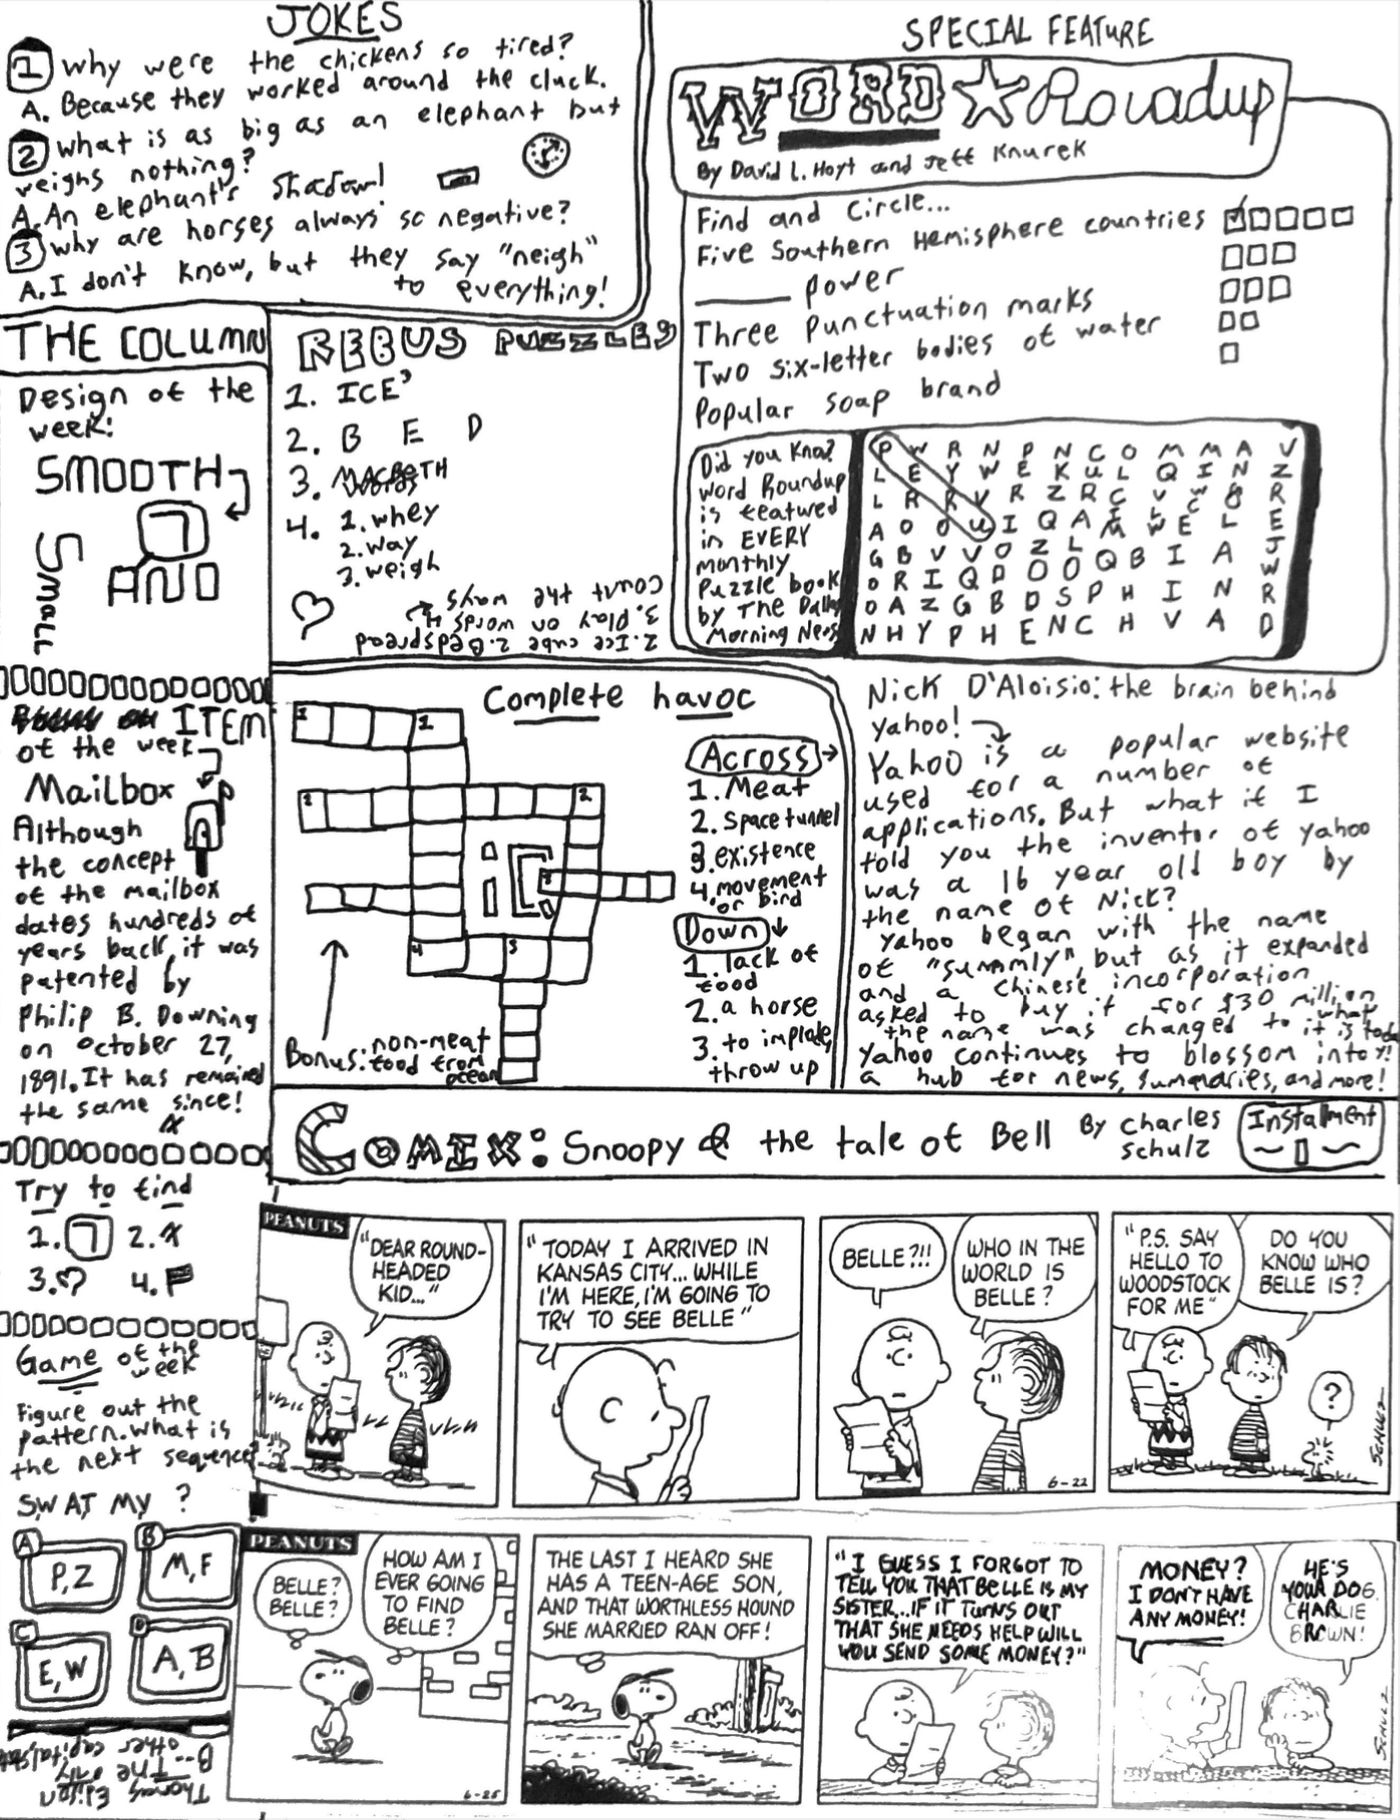 JOKES
1 Why were the chickens so tired?
A. Because they worked around the cluck.
2 What is as big as an elephant but
weighs nothing?
A. An elephant's shadow!
3 Why are horses always so negative?
A. I don't know, but they say "neigh"
to everything!
SPECIAL FEATURE
WORD Roundup
By David L. Hoyt and Jeff Knurek
Find and Circle...
Five Southern Hemisphere countries
power
Three Punctuation marks
Two six-letter bodies of water
Popular soap brand
Did you Know?
Word Roundup
is featured
in EVERY
monthly
Puzzle book
by The Dallas
Morning News
P W R N P N C O M M A V
L E Y W E K U L Q I N Z
A O O U I Q A M W E L E
G B V V O Z L
O R I Q D O O Q B I A
O A Z G B D S P H I N R
N H Y P H E N C H V A D
THE COLUMN
Design of the
week:
SMOOTH
7
AND
Small
REBUS PUZZLES
1. ICE³
2. B E D
3. MACBETH
words
4. 1. whey
2. way
3. weigh
1. Ice cube 2. Bedspread
3. Play on words 4.
Count the ways
ITEM
of the week
Mailbox
Although
the concept
of the mailbox
dates hundreds of
years back, it was
patented by
Philip B. Downing
on October 27,
1891. It has remained
the same since!
Complete havoc
1
1
2
2
3
4
3
Across
1. Meat
2. space tunnel
3. existence
4. movement
of bird
Down
1. lack of
food
2. a horse
3. to implode,
throw up
Bonus: non-meat
food from
ocean
Nick D'Aloisio: the brain behind
Yahoo!
Yahoo is a popular website
used for a number of
applications. But what if I
told you the inventor of yahoo
was a 16 year old boy by
the name of Nick?
Yahoo began with the name
of "Summly", but as it expanded
and a Chinese incorporation
asked to buy it for $30 million
the name was changed to what
it is today!
Yahoo continues to blossom into
a hub for news, summaries, and more!
COMIX: Snoopy & the tale of Bell By Charles
Schulz
Installment
Try to find
1. 7 2.
3. 4.
Game of the
week
Figure out the
pattern. What is
the next sequence?
S,W AT MY ?
A P,Z
B M,F
C E,W
D A,B
B--
The only
other capital
Thomas Edison
PEANUTS
"DEAR ROUND-
HEADED
KID..."
"TODAY I ARRIVED IN
KANSAS CITY... WHILE
I'M HERE, I'M GOING TO
TRY TO SEE BELLE"
BELLE?!!
WHO IN THE
WORLD IS
BELLE?
6-22
"P.S. SAY
HELLO TO
WOODSTOCK
FOR ME"
DO YOU
KNOW WHO
BELLE IS?
?
SCHULZ
PEANUTS
BELLE?
BELLE?
HOW AM I
EVER GOING
TO FIND
BELLE?
6-25
THE LAST I HEARD SHE
HAS A TEEN-AGE SON,
AND THAT WORTHLESS HOUND
SHE MARRIED RAN OFF!
"I GUESS I FORGOT TO
TELL YOU THAT BELLE IS MY
SISTER...IF IT TURNS OUT
THAT SHE NEEDS HELP WILL
YOU SEND SOME MONEY?"
MONEY?
I DON'T HAVE
ANY MONEY!
HE'S
YOUR DOG,
CHARLIE
BROWN!
SCHULZ